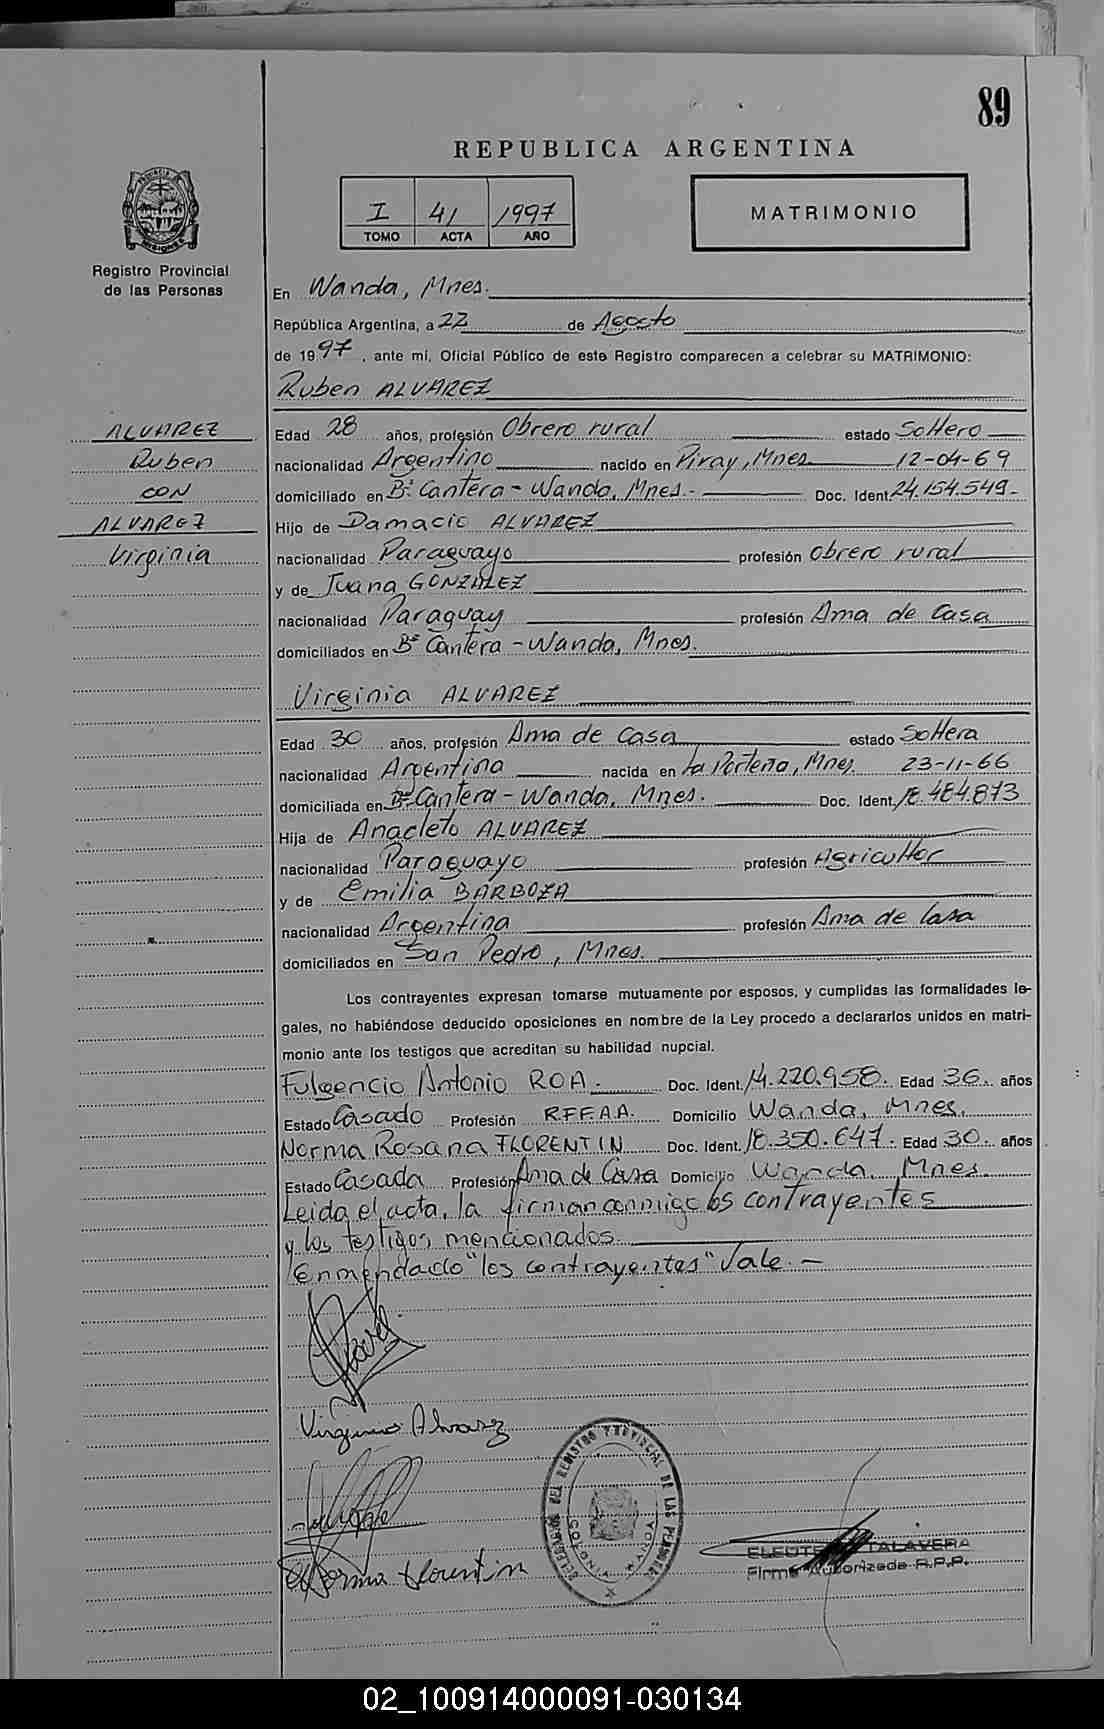 89
REPUBLICA ARGENTINA
I 41 1997
TOMO ACTA AÑO
MATRIMONIO
Registro Provincial
de las Personas
En Wanda, Mnes.
República Argentina, a 22 de Agosto
de 1997, ante mí, Oficial Público de este Registro comparecen a celebrar su MATRIMONIO:
Ruben ALVAREZ
ALVAREZ
Ruben
CON
ALVAREZ
Virginia
Edad 28 años, profesión Obrero rural estado Soltero
nacionalidad Argentino nacido en Piray, Mnes. 12-04-69
domiciliado en Bº Cantera - Wanda, Mnes.- Doc. Ident. 24.154.549-
Hijo de Damacio ALVAREZ
nacionalidad Paraguayo profesión obrero rural
y de Juana GONZALEZ
nacionalidad Paraguay profesión Ama de Casa
domiciliados en Bº Cantera - Wanda, Mnes.
Virginia ALVAREZ
Edad 30 años, profesión Ama de Casa estado Soltera
nacionalidad Argentina nacida en La Porteña, Mnes 23-11-66
domiciliada en Bº Cantera - Wanda, Mnes. Doc. Ident. 18.484.873
Hija de Anacleto ALVAREZ
nacionalidad Paraguayo profesión Agricultor
y de Emilia BARBOZA
nacionalidad Argentina profesión Ama de Casa
domiciliados en San Pedro, Mnes.
Los contrayentes expresan tomarse mutuamente por esposos, y cumplidas las formalidades le-
gales, no habiéndose deducido oposiciones en nombre de la Ley procedo a declararlos unidos en matri-
monio ante los testigos que acreditan su habilidad nupcial.
Fulgencio Antonio ROA. Doc. Ident. 14.220.958. Edad 36. años
Estado Casado Profesión RR.F.A.A. Domicilio Wanda, Mnes.
Norma Rosana FLORENTIN Doc. Ident. 18.350.647. Edad 30. años
Estado Casada Profesión Ama de Casa Domicilio Wanda, Mnes.
Leida el acta, la firman conmigo los contrayentes
y los testigos mencionados.
Enmendado "los contrayentes" Vale.-
Virginia Alvarez
Norma Florentin
DELEGACION DEL REGISTRO PROVINCIAL DE LAS PERSONAS
ELEUTE TALAVERA
Firma Autorizada R.P.P.
02_100914000091-030134